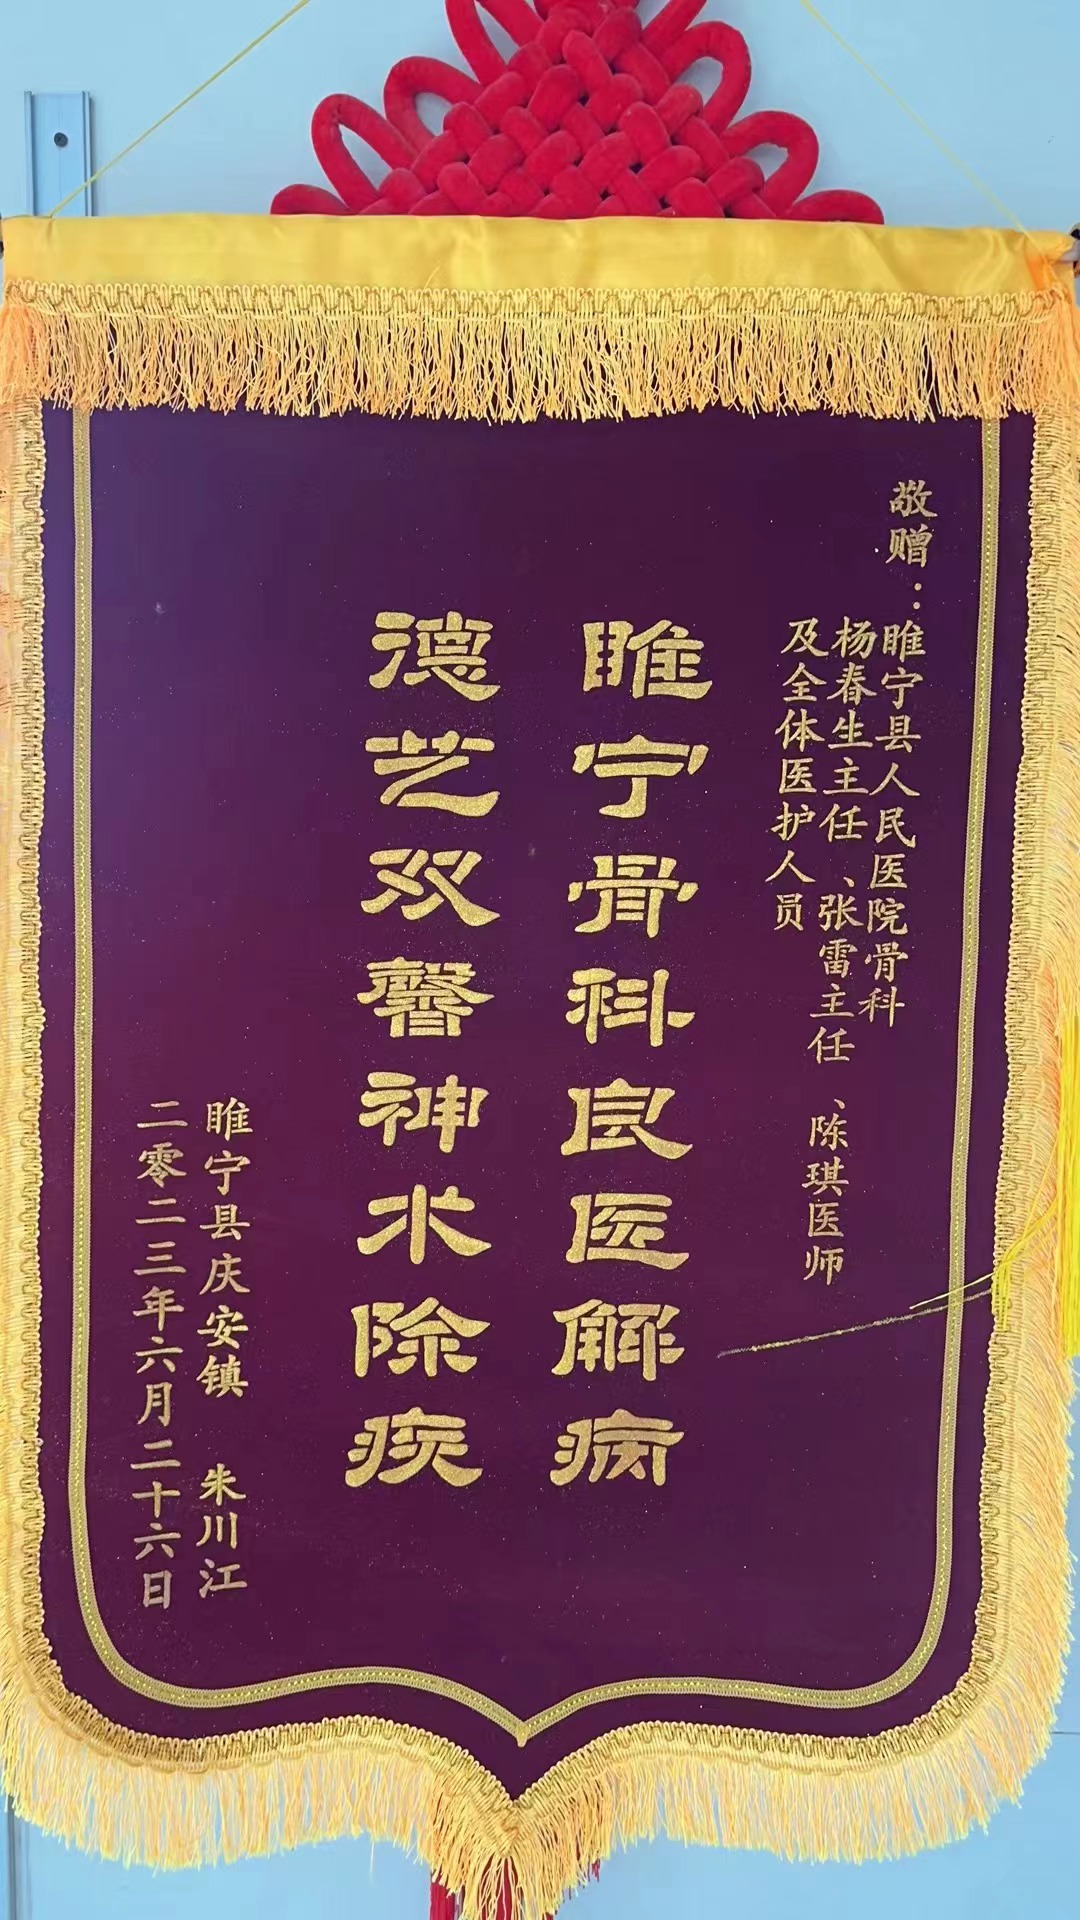 敬赠：
睢宁县人民医院骨科
杨春生主任、张雷主任、陈琪医师
及全体医护人员
睢宁骨科良医解病
德艺双馨神术除疾
睢宁县庆安镇 朱川江
二零二三年六月二十六日